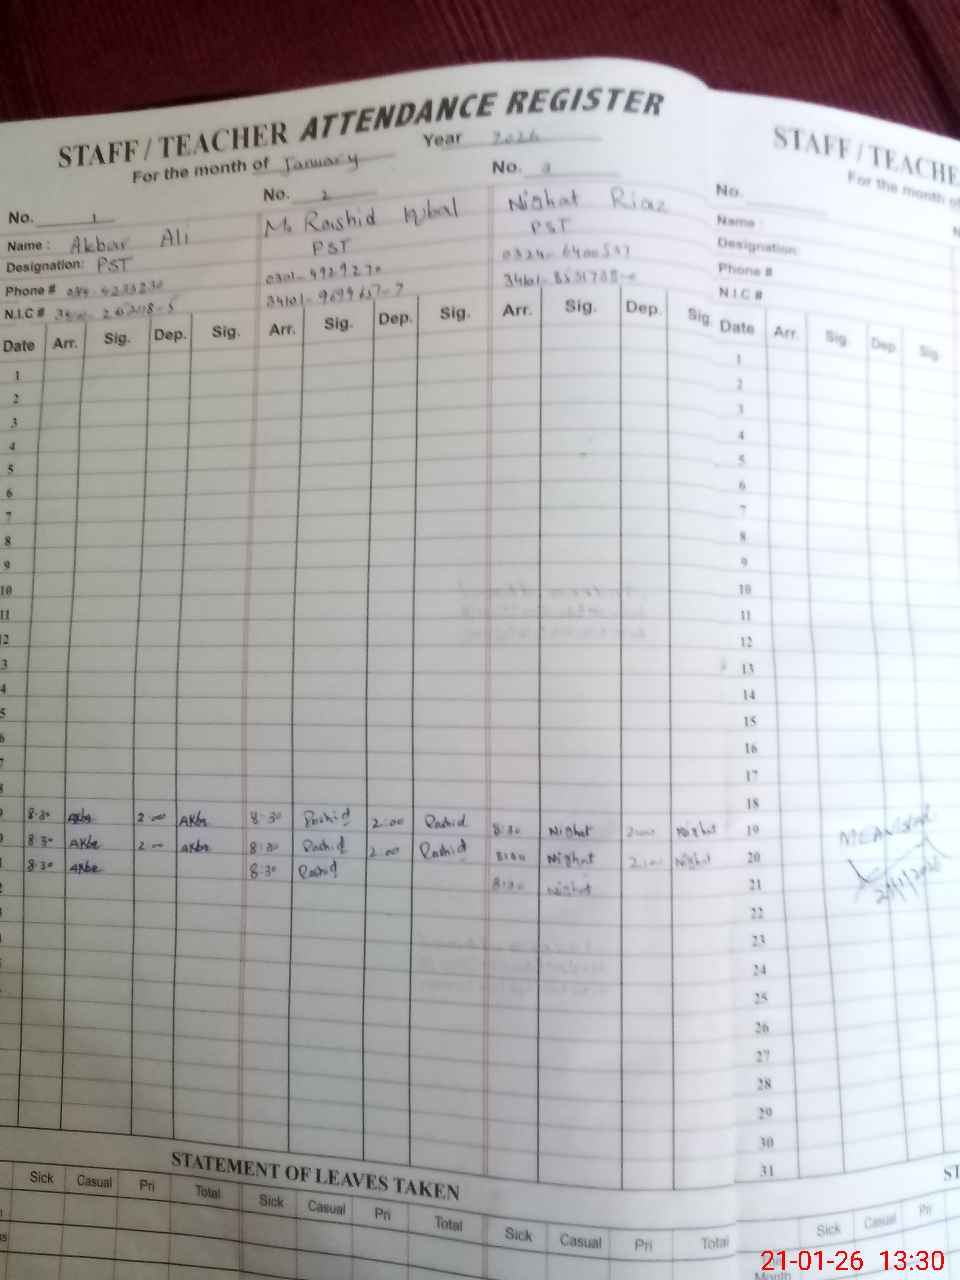 STAFF / TEACHER ATTENDANCE REGISTER
For the month of January Year 2026
No. 1 No. 2 No. 3
Name : Akbar Ali
M. Rashid Iqbal
Nighat Riaz
Designation: PST PST PST
Phone #
N.I.C #
Date Arr. Sig. Dep. Sig. Arr. Sig. Dep. Sig. Arr. Sig. Dep. Sig.
1
2
3
4
5
6
7
8
9
10
11
8:30 Akbr 2:00 Akbr 8:30 Rashid 2:00 Rashid 8:30 Nighat 2:00 Nighat
8:30 Akbr 2:00 Akbr 8:30 Rashid 2:00 Rashid 8:30 Nighat 2:00 Nighat
8:30 Akbr 8:30 Rashid 8:30 Nighat
STATEMENT OF LEAVES TAKEN
Sick Casual Pri Total Sick Casual Pri Total Sick Casual Pri Total
STAFF / TEACHE
For the month of
No.
Name :
Designation:
Phone #
N.I.C #
Date Arr. Sig. Dep. Sig.
1
2
3
4
5
6
7
8
9
10
11
12
13
14
15
16
17
18
19
20
21
22
23
24
25
26
27
28
29
30
31
Sick Casual Pri
Month
21-01-26 13:30